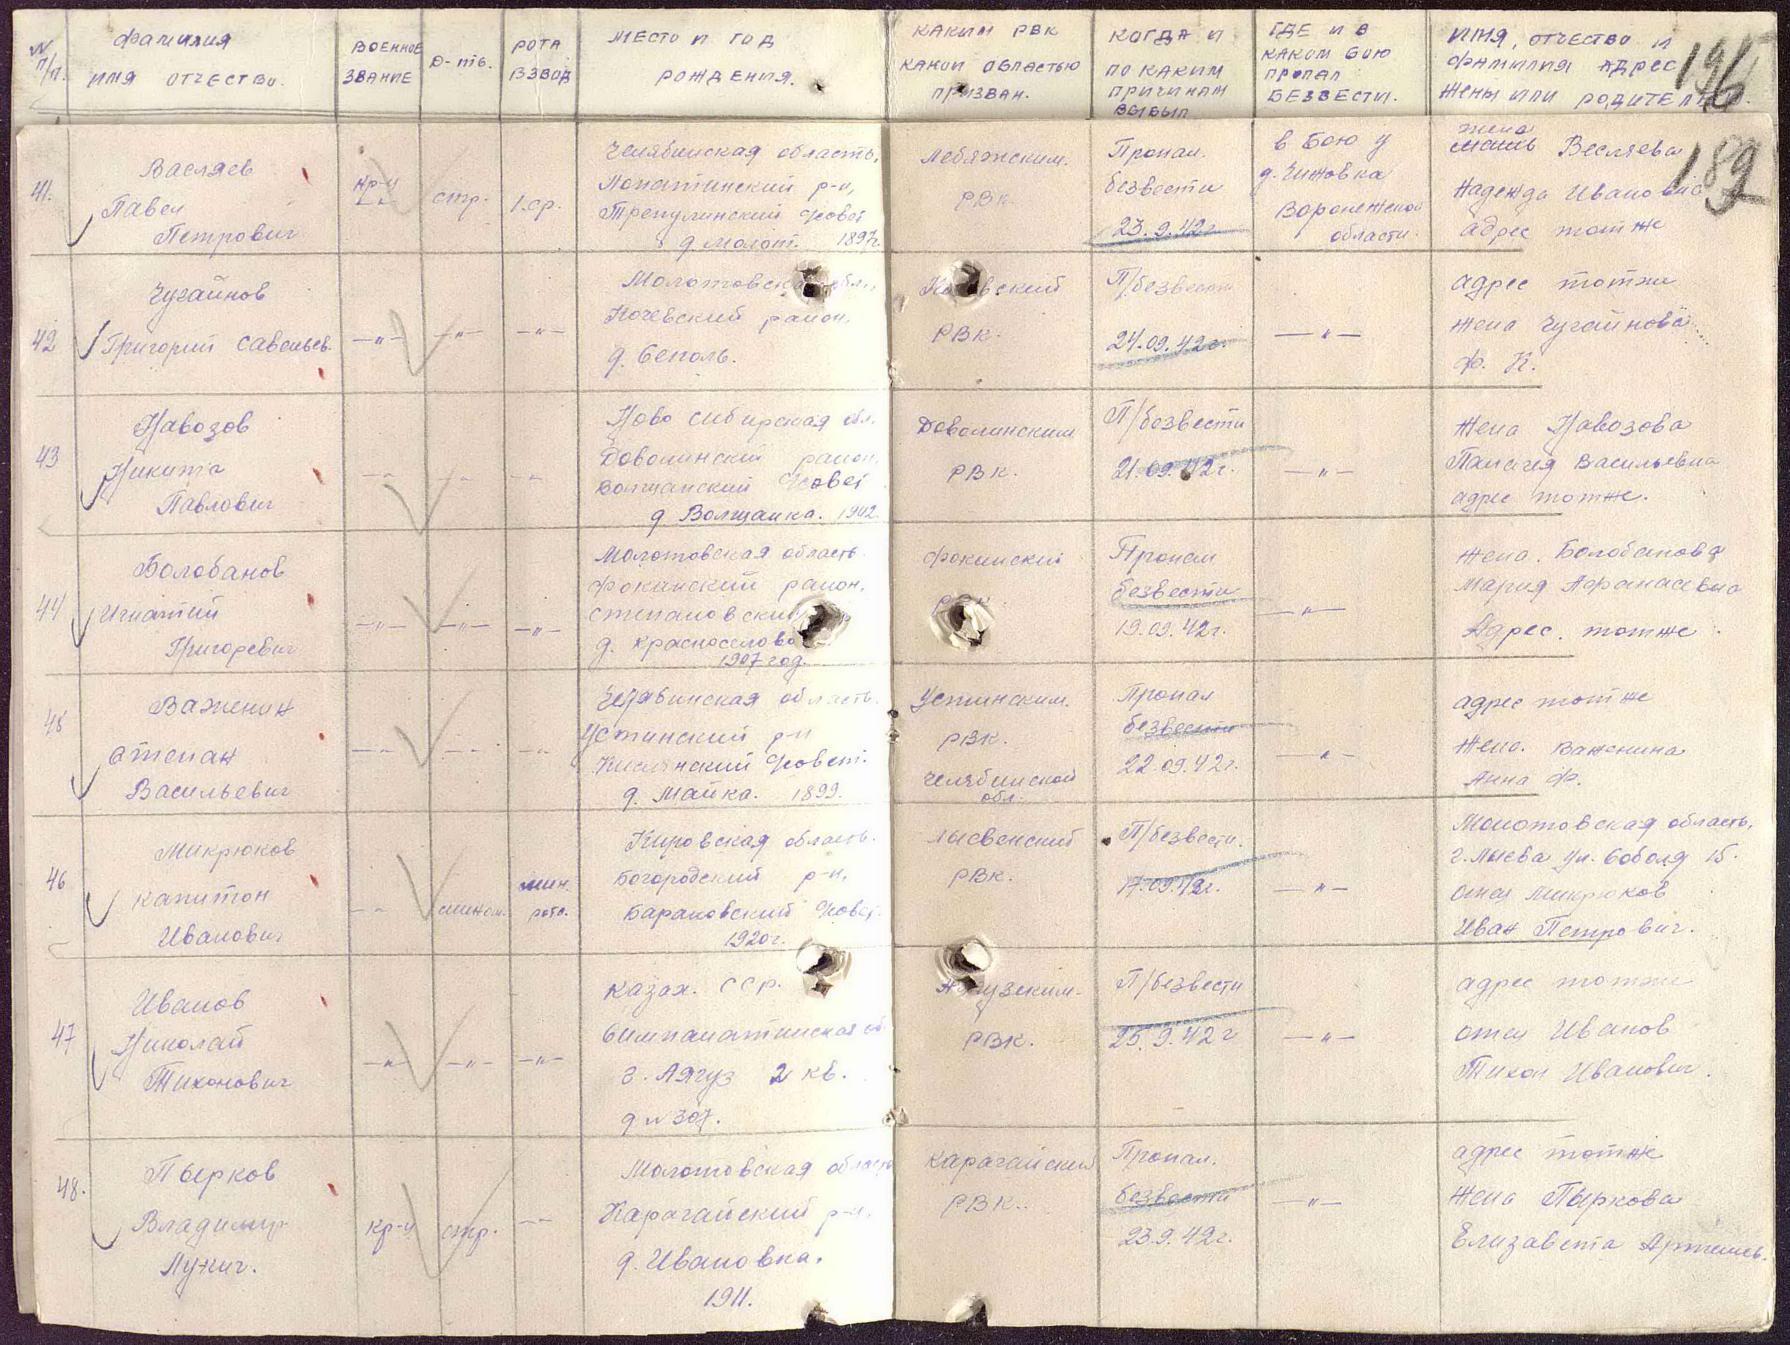 № п/п.
Фамилия имя отчество.
Военное звание
Д-ть.
Рота взвод
Место и год рождения.
Каким РВК какой областью призван.
Когда и по каким причинам выбыл
Где и в каком бою пропал безвести.
Имя, отчество и фамилия адрес жены или родителей.
196
189
41.
Васляев
Павел
Петрович
кр-ц
стр.
1.ср.
Челябинская область,
Лопатинский р-н,
1897г.
Лебяжским.
РВК.
Пропал.
безвести
23.9.42г
в бою у
д. Чижовка
Воронежской
области.
жена
Весляева
Надежда Ивановна
адрес тот же
42
Чугайнов
Григорий Савельев.
—„—
—„—
—„—
Молотовская обл.
Кочевский район,
Кочевский
РВК.
П/безвести
24.09.42г.
—„—
адрес тот же
жена Чугайнова
Ф. К.
43
Навозов
Никита
Павлович
—„—
—„—
—„—
Ново Сибирская обл.
Доволинский район,
Волчанский Совет
д Волчанка. 1902
Доволинским
РВК.
П/безвести
21.09.42г.
—„—
жена Навозова
Палагея Васильевна
адрес тот же.
44
Болобанов
Игнатий
Григоревич
—„—
—„—
—„—
Молотовская область
Фокинский район,
Степановский
д. Красноселово
1907 год.
Фокинский
РВК.
Пропал
безвести
19.09.42г.
—„—
жена. Болобанова
Мария Афанасевна
Адрес. тот же
45
Важенин
Степан
Васильевич
—„—
—„—
—„—
Челябинская область
Устинский р-н
Кислянский Совет.
д. Майка. 1899.
Устинским.
РВК.
Челябинской
обл.
Пропал
безвести
22.09.42г.
—„—
адрес тот же
жена. Важенина
Анна Ф.
46
Микрюков
Капитон
Иванович
—„—
мин.
рота.
Кировская область.
Богородский р-н,
Барановский Совет.
1920г.
Лысвенский
РВК.
П/безвести.
17.09.42г.
—„—
Молотовская область,
г. Лысва ул. Соболя 15.
отец Микрюков
Иван Петрович.
47
Иванов
Николай
Тихонович
—„—
—„—
—„—
Казах. ССР.
г. Аягуз 2 кв.
д № 307.
Аягузским.
РВК.
П/безвести
25.9.42г
—„—
адрес тот же
отец Иванов
Тихон Иванович.
48.
Пырков
Владимир
Лукич.
кр-ц
стр.
—„—
Молотовская область
Карагайский р-н,
д. Ивановка.
1911.
Карагайский
РВК.
Пропал.
безвести
23.9.42г.
—„—
адрес тот же
жена Пыркова
Елизавета Артемьев.